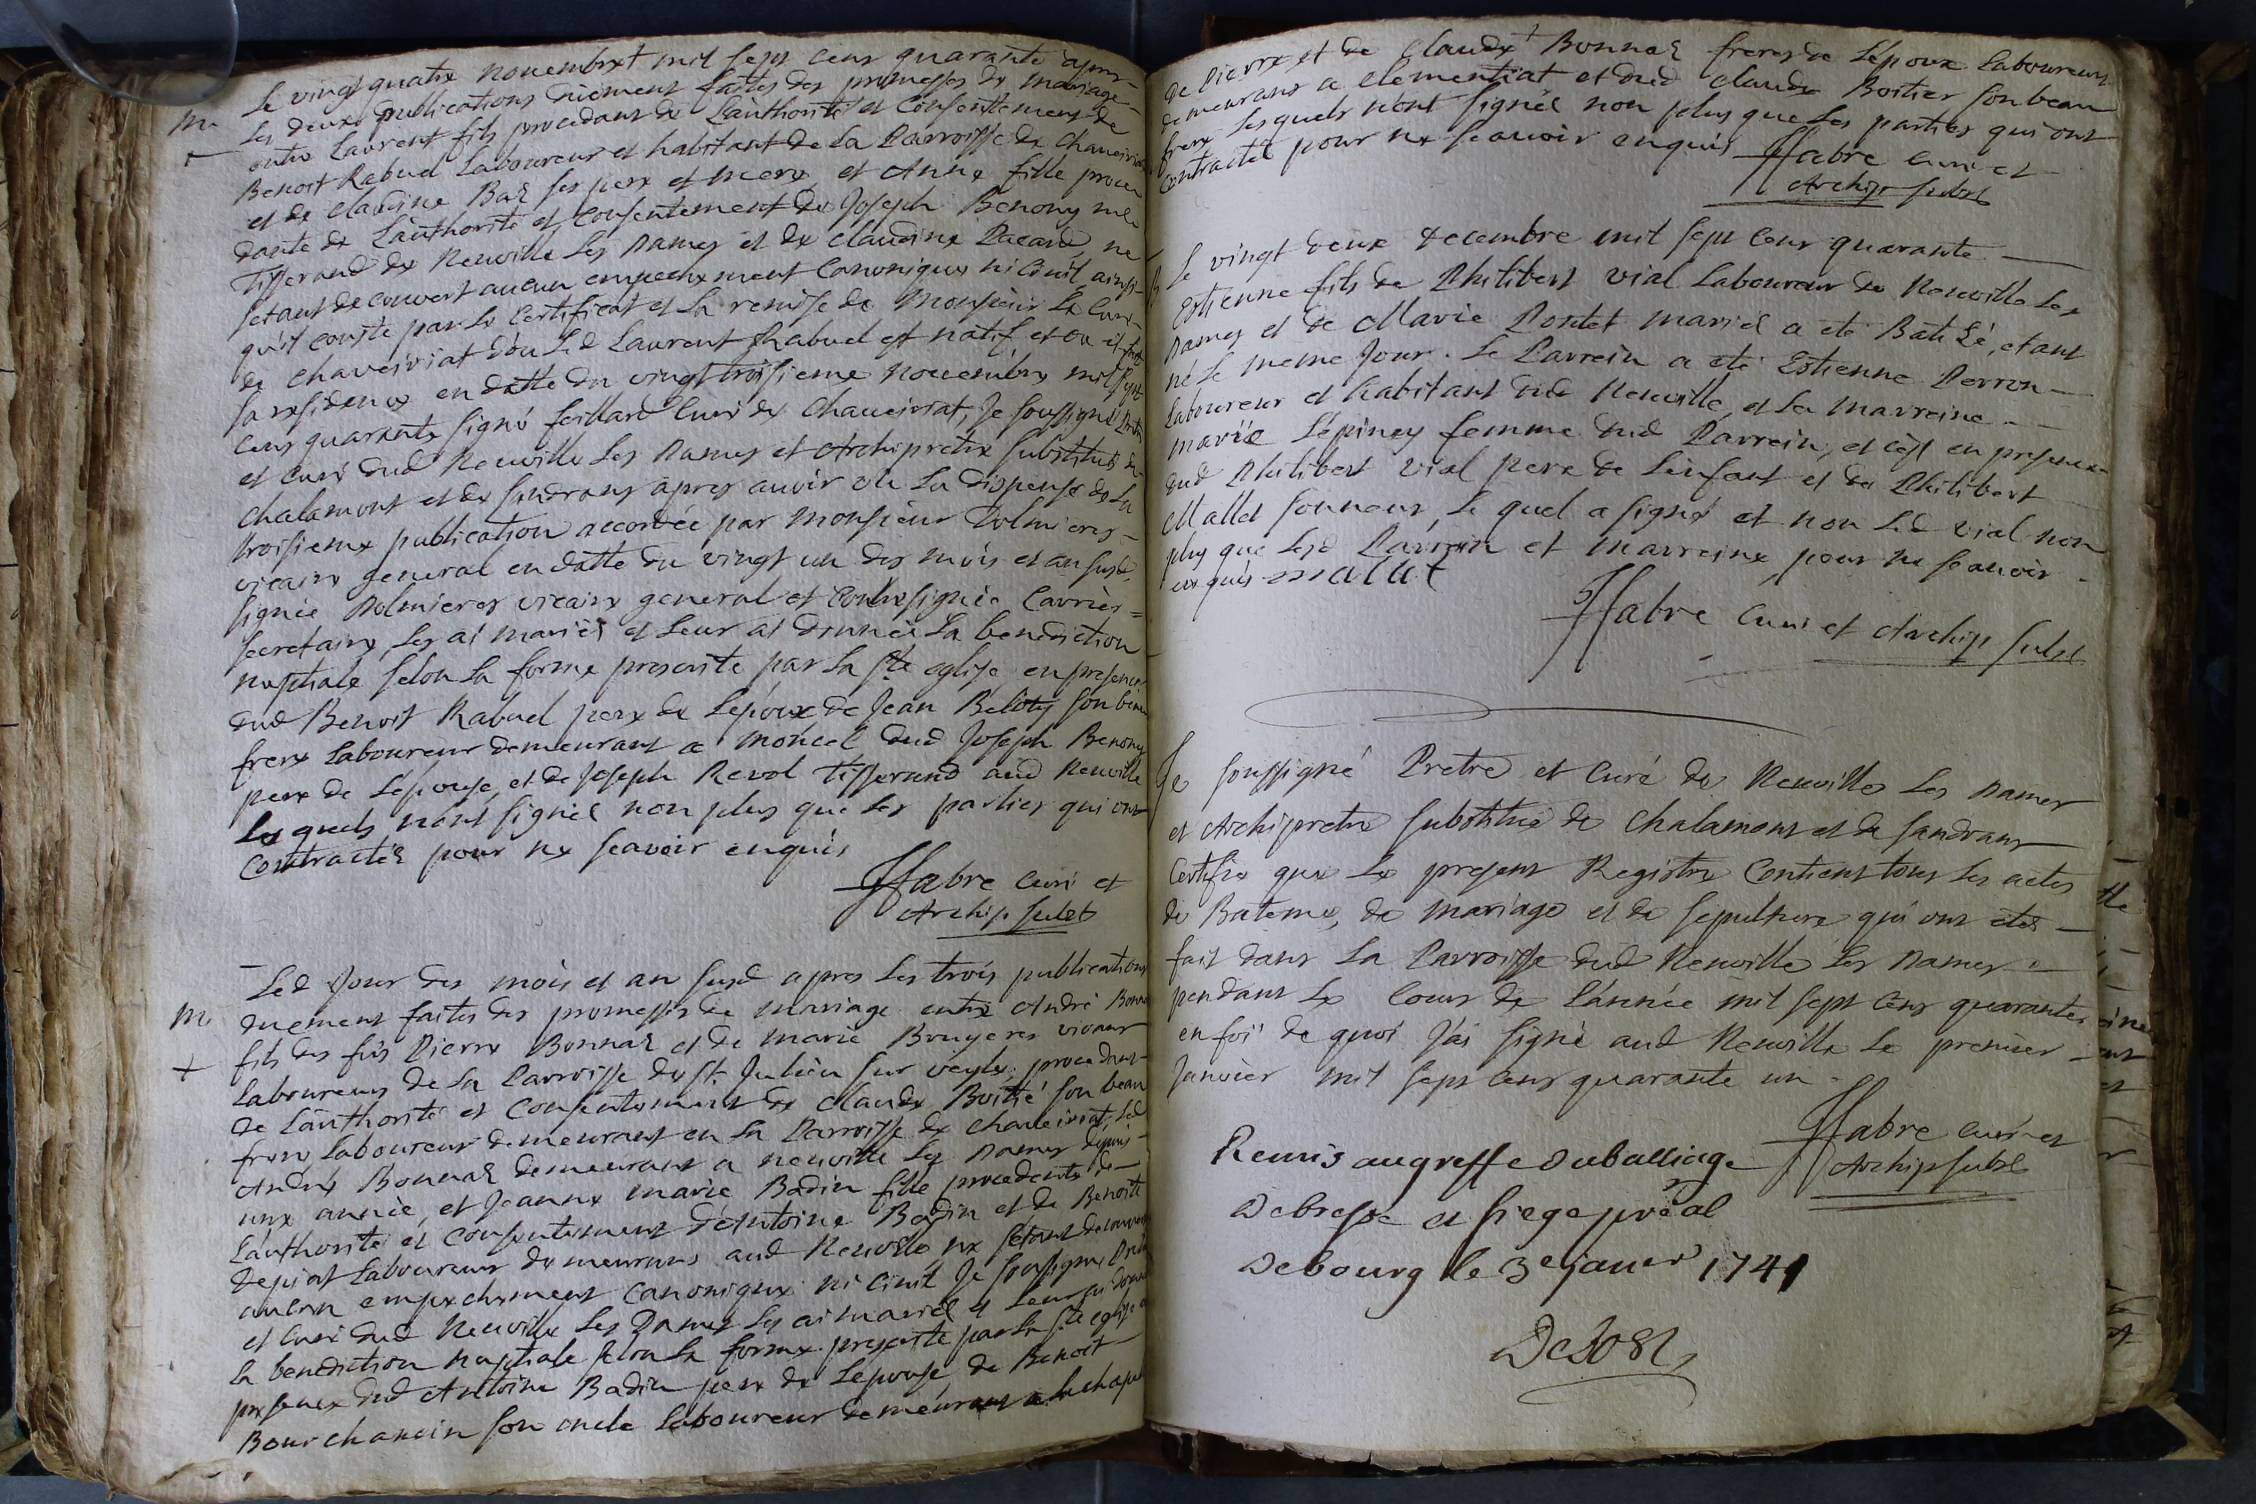 Le vingt quatre novembre mil sept cens quarante apres
M. les deux publications düement faites des promesses de mariage
entre Laurent fils procedant de L'authorité et Consentement de
Benoit Rabuel Laboureur et habitant de la Parroisse de Chaveiriat
et de Claudine Baz ses pere et mere et Anne fille proce
dante de L'authorité et Consentement de Joseph Benony me
Tisserand de Neuville Les Dames et de Claudine Pacard, ne
s'etant decouvert aucun empechement Canonique ni Civil, ainsi
qu'il conste par Le Certificat et La remise de Monsieur Le Curé
de Chaveiriat d'ou Led Laurent Rabuel est natif et ou il fait
sa residence en datte du vingt troisieme novembre mil sept
cens quarante signé feillard Curé de Chaveiriat, Je soussigné Pretre
et Curé dud Neuville Les Dames et Archipretre substitué de
Chalamont et de Sandrans apres avoir vû La dispense de La
troisieme publication accordée par Monsieur Dolmieres
vicaire general en datte du vingt un des mois et an susd,
signée Dolmieres vicaire general et Contresignée Carrier =
secretaire, Les ai mariés et Leur ai donnée La benediction
nuptiale selon La forme prescrite par La Ste eglise en presence
dud Benoit Rabuel pere de L'époux de Jean Beloty son beau
frere Laboureur demeurant a Moncel dud Joseph Benony
pere de L'épouse, et de Joseph Revol Tisserand aud Neuville
Les quels n'ont signés non plus que Les parties qui ont
Contractés pour ne sçavoir enquis
JFabre curé et
Archip. subst
Led jour des mois et an susd apres Les trois publications
M. düement faites des promesses de mariage entre André Bonnaz
fils des fûs Pierre Bonnaz et de Marie Bruyeres vivans
+ Laboureurs de La Parroisse de St. Julien sur veyle, procedant
de L'authorité et Consentement de Claude Boitié son beau
frere Laboureur demeurant en La Parroisse de Chaveiriat, Led
André Bonnaz demeurant a neuville Les Dames depuis
une année, et Jeanne Marie Badin fille procedente de
L'authorité et consentement d'Antoine Badin et de Benoite
Depiat Laboureurs demeurans aud Neuville ne s'etant decouvert
aucun empechement canonique ni civil Je soussigné Pretre
et curé dud Neuville Les Dames Les ai mariés et Leur ai donné
La benediction nuptiale selon La forme prescrite par La Ste eglise en
presence dud Antoine Badin pere de L'epouse de Benoit
Bourchanin son oncle Laboureur demeurant a La chapelle
de Pierre et de Claude Bonnaz freres de L'époux Laboureurs
demeurans a Clementiat et dud Claude Boitier son beau
frere Lesquels n'ont signés non plus que Les parties qui ont
Contractés pour ne sçavoir enquis JFabre curé et
Archip subst
Le vingt deux decembre mil sept cens quarante
Estienne fils de Philibert Vial Laboureur de Neuville Les
Dames et de Marie Pontet mariés a eté Batisé, etant
né Le meme Jour. Le Parrein a eté Estienne Perron
Laboureur et habitant dud Neuville, et La Marreine
Marie L'épiney femme dud Parrein, et c'est en presence
dud Philibert Vial pere de L'enfant et de Philibert
Mallet sonneur, Le quel a signé et non Led Vial non
plus que Lesd Parrein et Marreine pour ne sçavoir
enquis mallet
JFabre curé et Archip subst
Je soussigné Pretre et Curé de Neuville Les Dames
et Archipretre substitué de Chalamont et de Sandrans
Certifie que Le present Registre Contient tous Les actes
de Bateme, de Mariage et de sepulture qui ont etés
fait dans La Parroisse dud Neuville Les Dames
pendant Le Cours de L'année mil sept cens quarante
en foi de quoi J'ai signé aud Neuville Le premier
Janvier mil sept cens quarante un
JFabre curé et
Archip subst
Remis au greffe du balliage
De bresse et siege préal
De bourg le 3e janer 1741